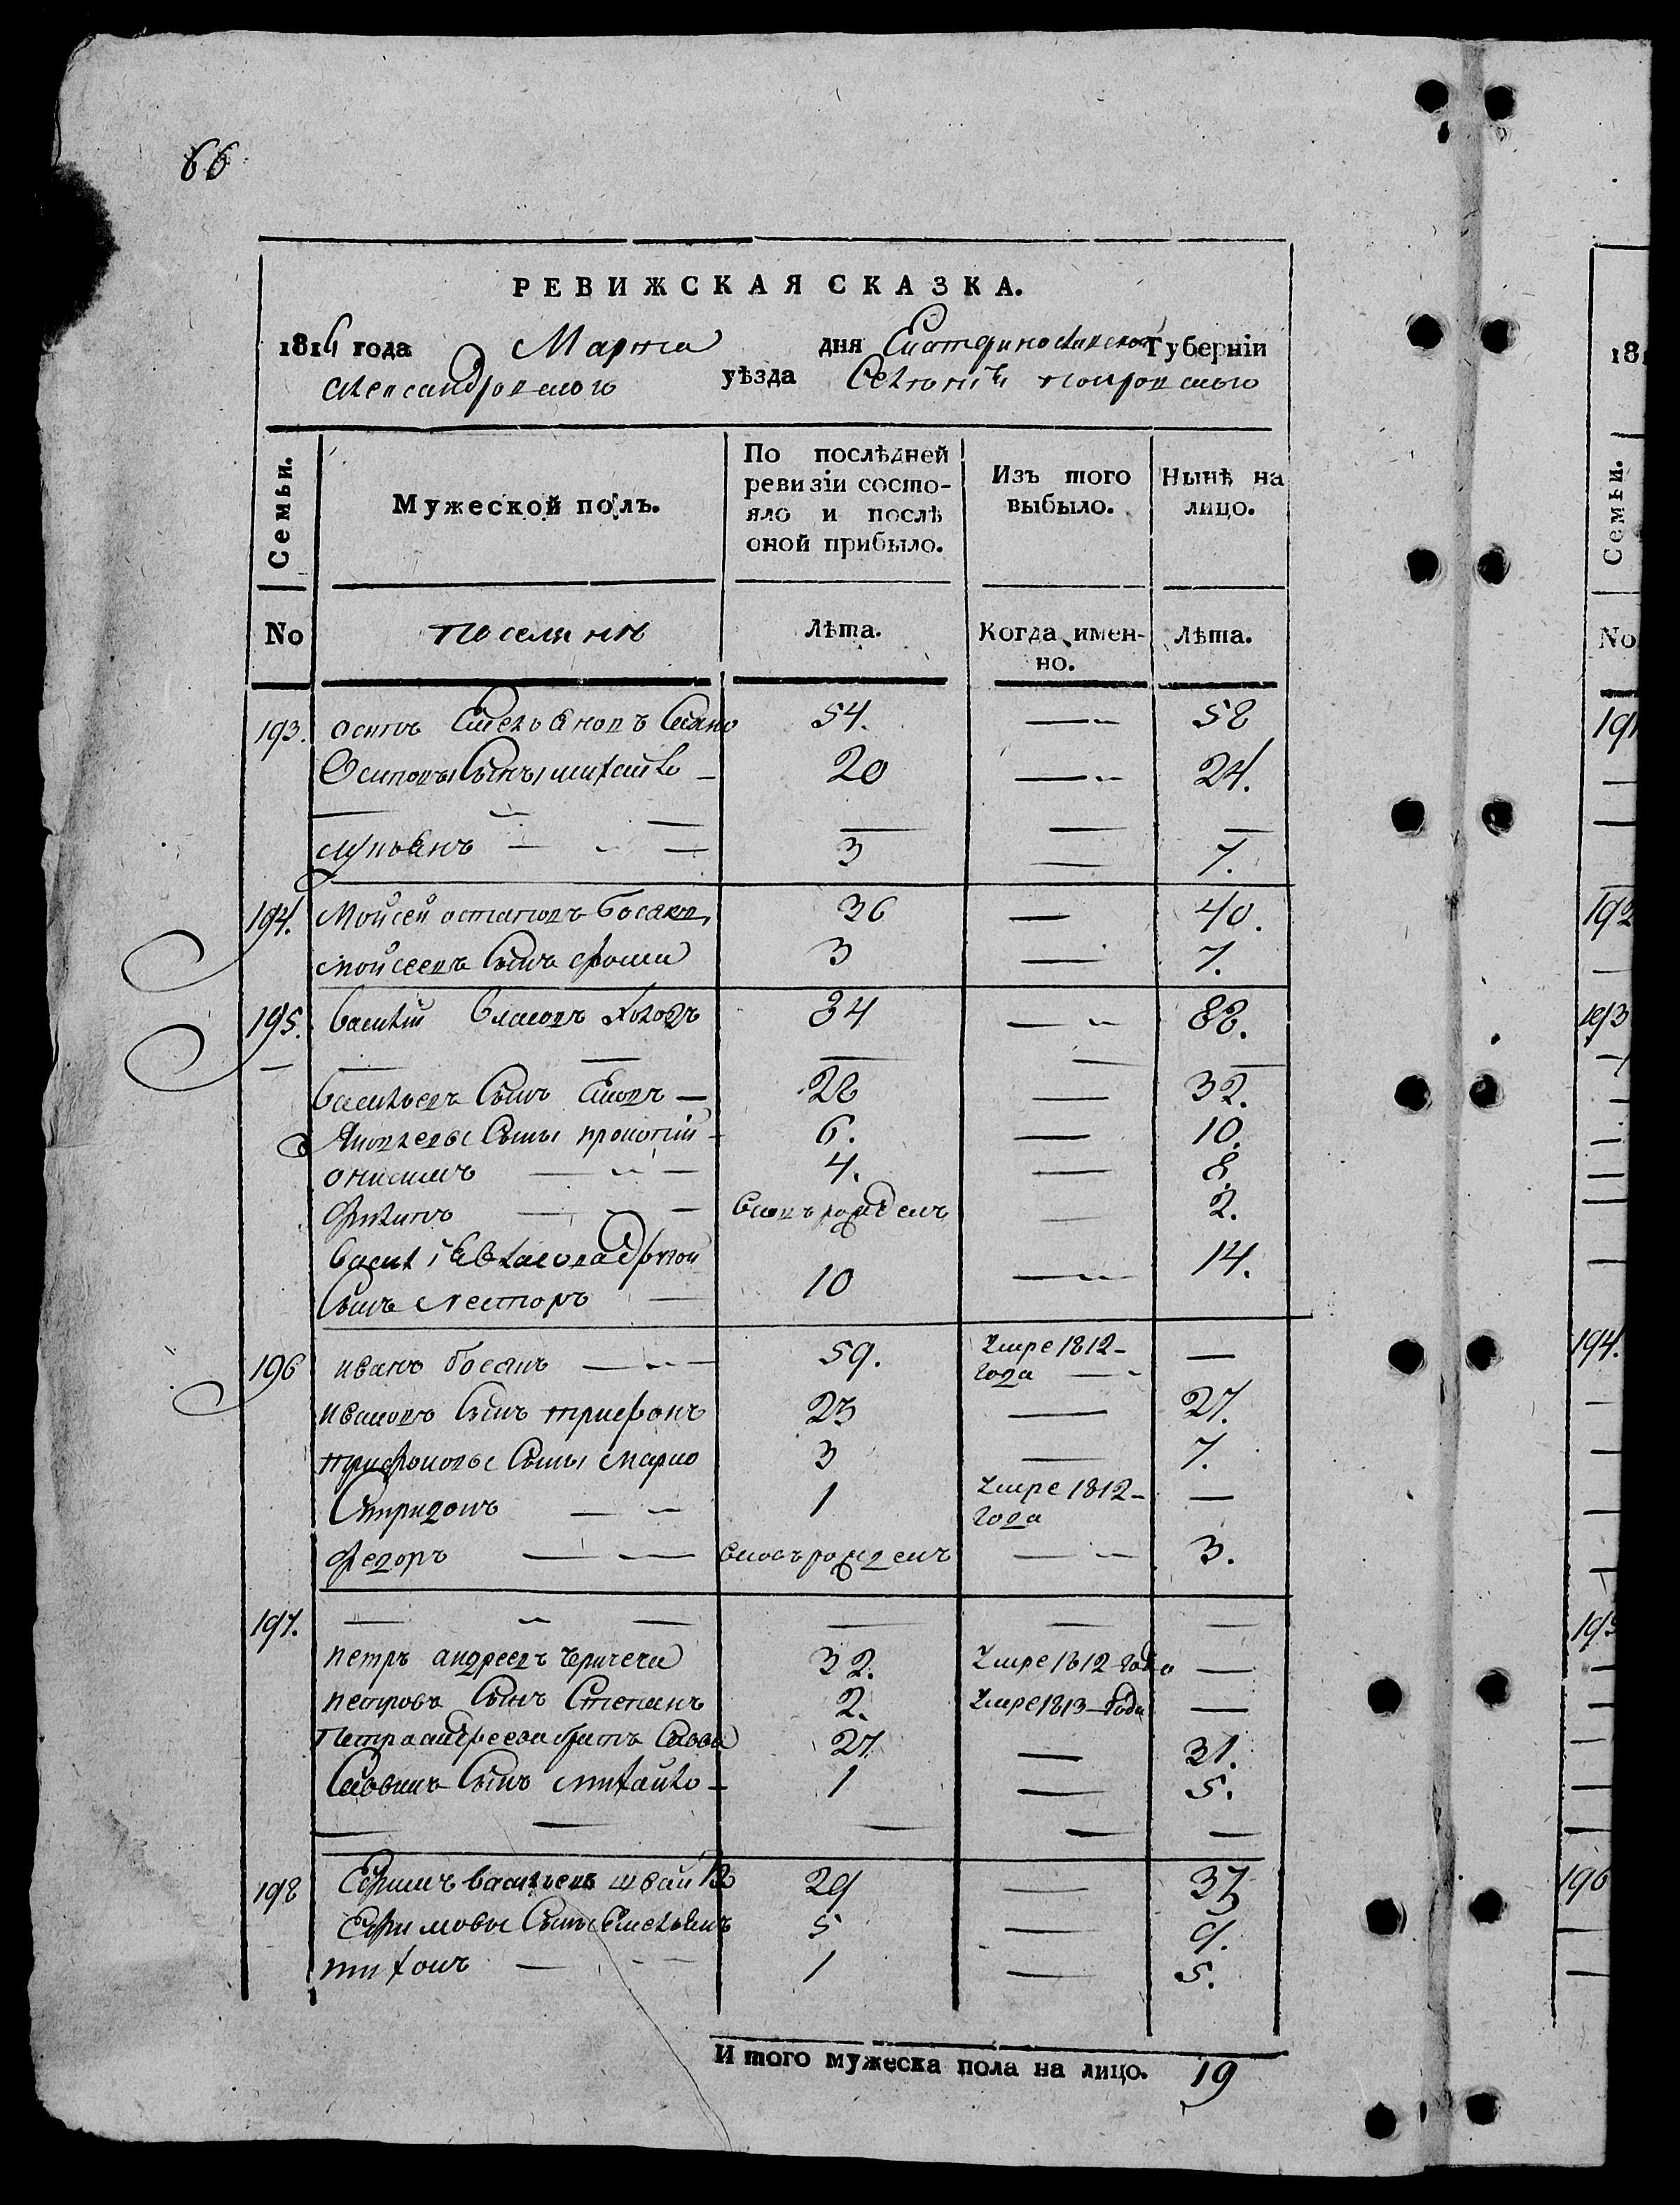 66
РЕВИЖСКАЯ СКАЗКА.
1816 года Марта дня Екатеринославской Губерніи
Александровского уѣзда Селенія Покровского
Семьи.
Мужеской полъ.
По послѣдней ревизіи состояло и послѣ оной прибыло.
Изъ того выбыло.
Нынѣ на лицо.
No
поселянъ
Лѣта.
Когда именно.
Лѣта.
193. Осипъ Емельяновъ 54. 58
Осиповы Сыны Михайло 20 24.
Лукьянъ 3 7.
194. Мойсей Остаповъ Босякъ 36 40.
Мойсеевъ Сынъ Фома 3 7.
195. Василій Власовъ 84 88.
Васильевъ Сынъ Яковъ 28 32.
Яковлевы Сыны Прокопій 6. 10.
Онисимъ 4. 8.
Филипъ вновь рожденъ 2.
Василія Власова другой 14.
Сынъ Несторъ 10
196 Иванъ Босякъ 59. Умре 1812-
года
Ивановъ Сынъ Трифонъ 23 27.
Трифоновы Сыны Марко 3 7.
Спиридонъ 1 Умре 1812-
года
Федоръ вновь рожденъ 3.
197.
Петръ Андреевъ 32. Умре 1812 года
Петровъ Сынъ Степанъ 2. Умре 1813 года
Петра Андреева братъ Савва 27 31.
Саввинъ Сынъ Михайло 1 5.
198 Ефимъ Васильевъ Швайко 29 33
Ефимовы Сыны Емельянъ 5 9.
Тихонъ 1 5.
Итого мужеска пола на лицо. 19
18
Семьи.
No
191
192
193
194.
195
196